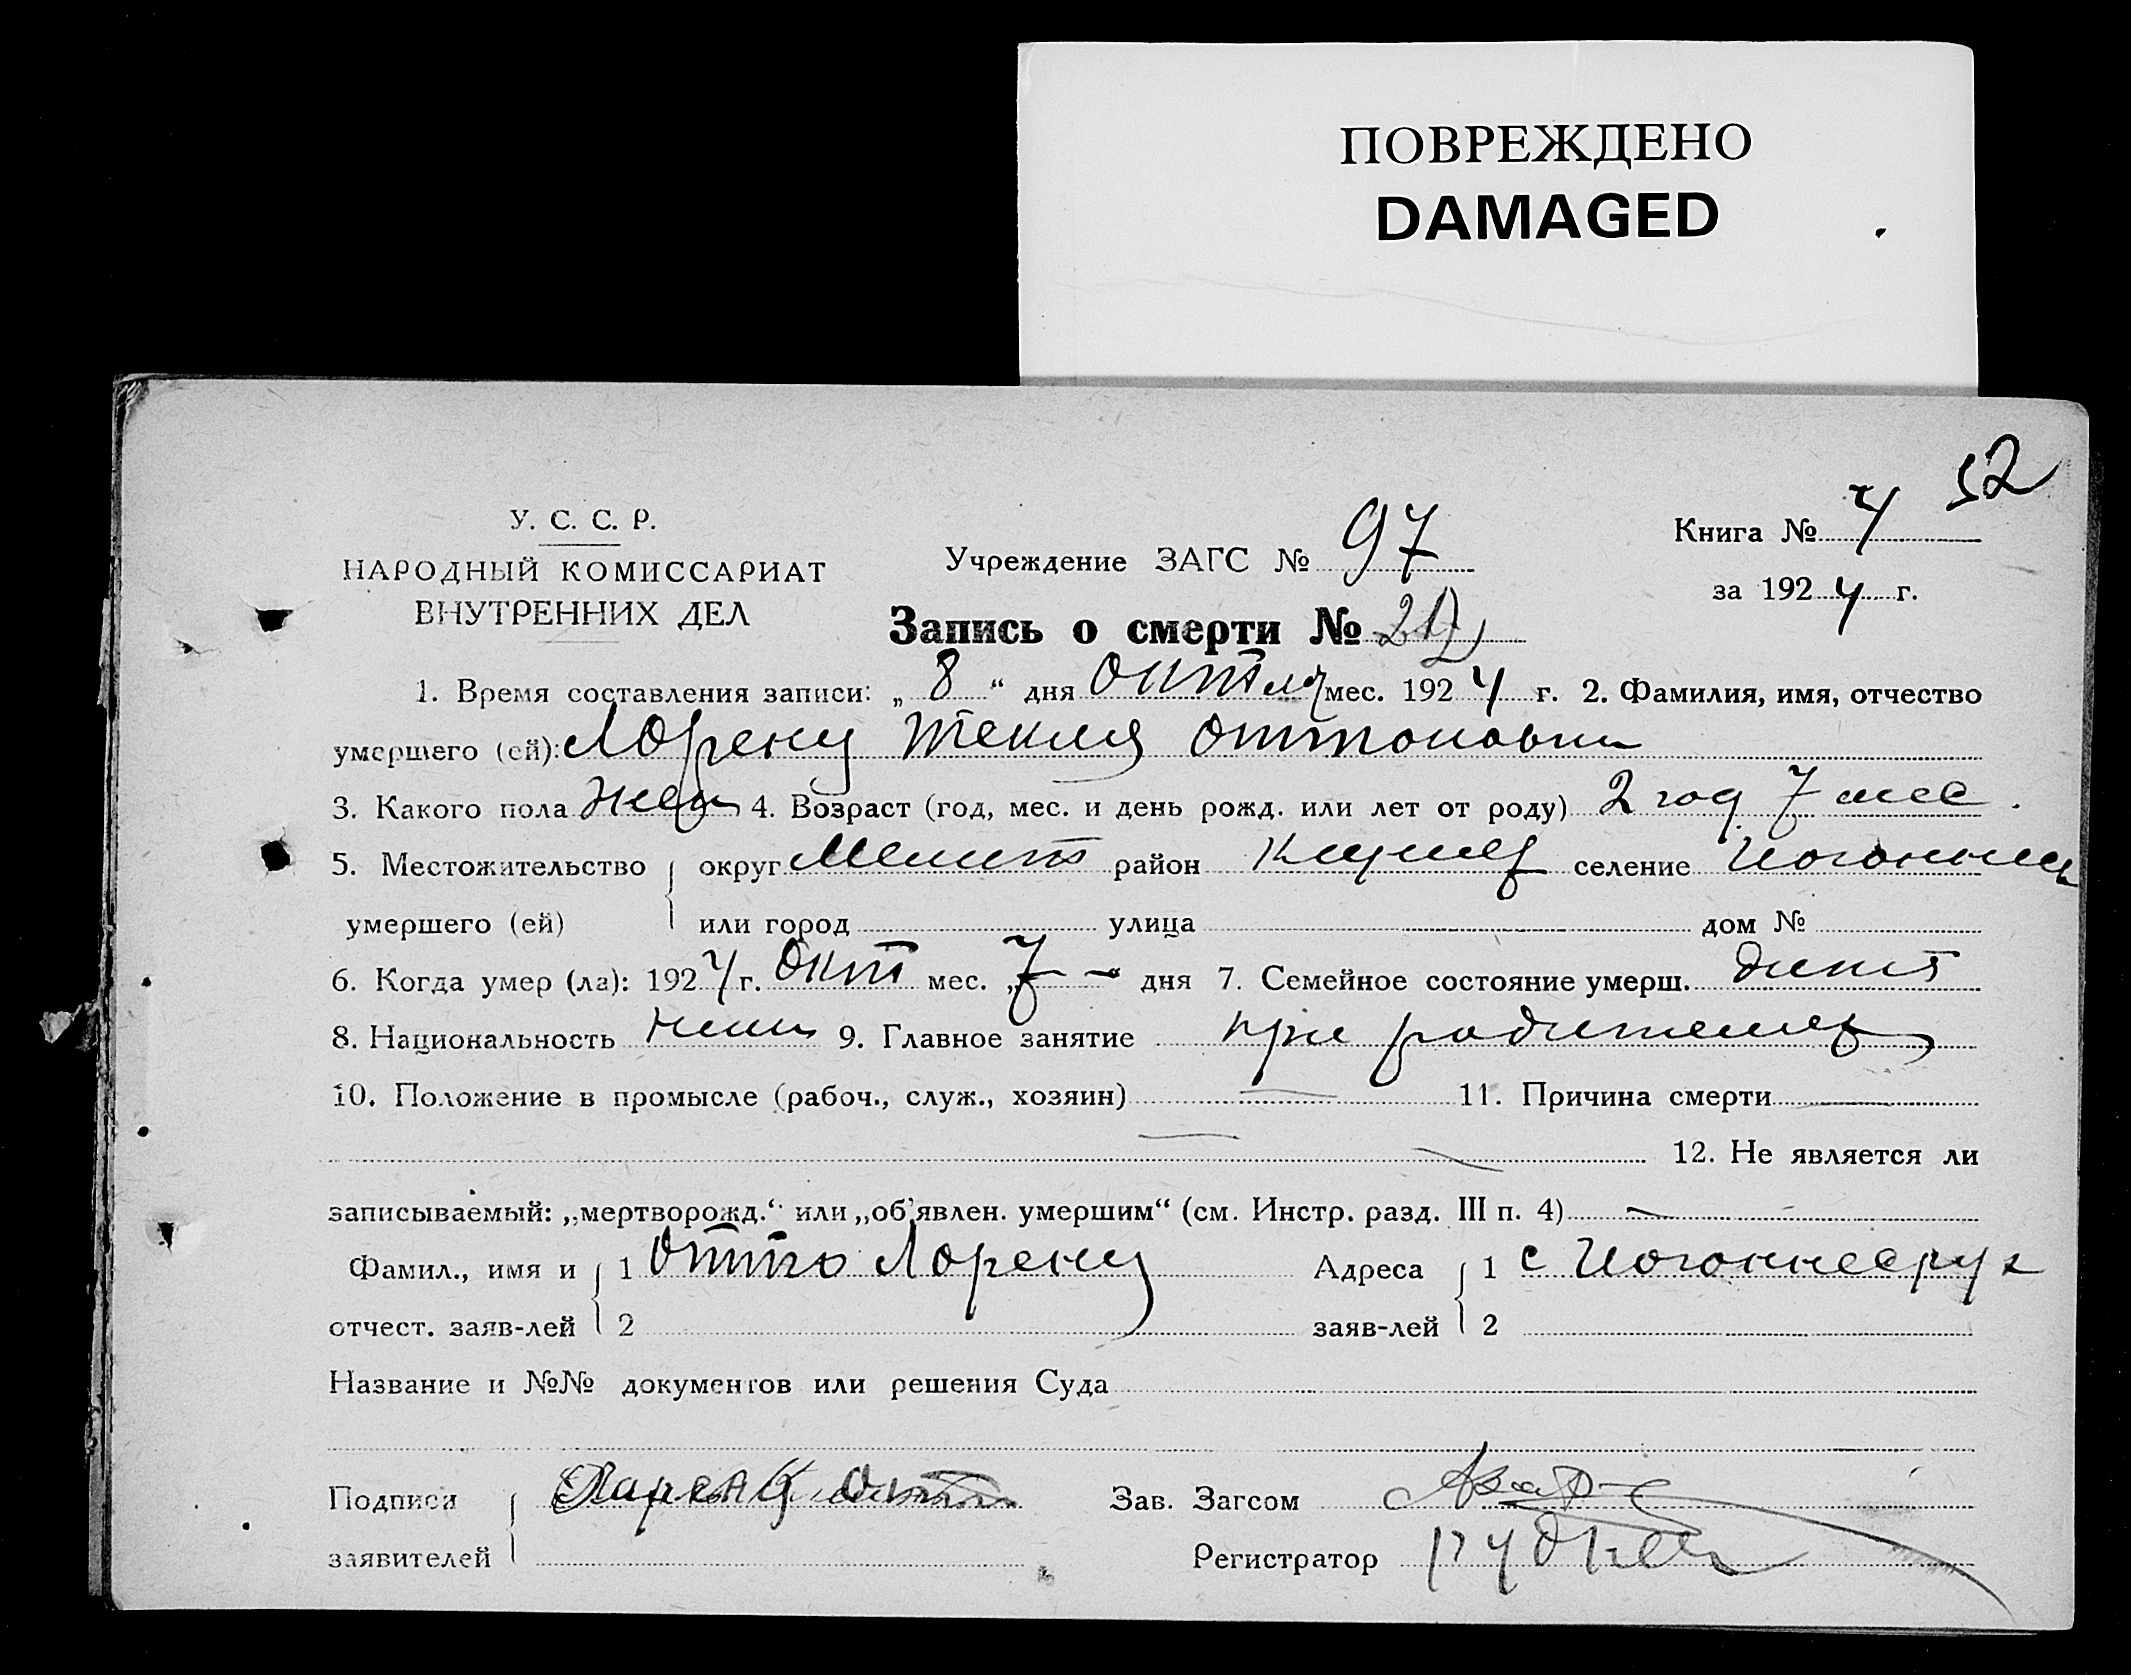 ПОВРЕЖДЕНО
DAMAGED
52
У. С. С. Р.
НАРОДНЫЙ КОМИССАРИАТ
ВНУТРЕННИХ ДЕЛ
Учреждение ЗАГС № 97
Книга № 4
за 1924 г.
Запись о смерти №
1. Время составления записи: „8“ дня Октяб мес. 1924 г. 2. Фамилия, имя, отчество
умершего (ей): Лоренц Текля Оттоновна
3. Какого пола жен 4. Возраст (год, мес. и день рожд. или лет от роду) 2 год 7 мес.
5. Местожительство округ Мелит район селение
умершего (ей) или город улица дом №
6. Когда умер (ла): 1924 г. Окт мес. „7“ дня 7. Семейное состояние умерш. дитя
8. Национальность нем 9. Главное занятие при родителях
10. Положение в промысле (рабоч., служ., хозяин) — 11. Причина смерти —
12. Не является ли
записываемый: „мертворожд.“ или „об'явлен. умершим“ (см. Инстр. разд. III п. 4) —
Фамил., имя и 1 Отто Лоренц Адреса 1 с Иоганнесру
отчест. заяв-лей 2 заяв-лей 2
Название и №№ документов или решения Суда
Подписи Лоренц Отто Зав. Загсом
заявителей Регистратор